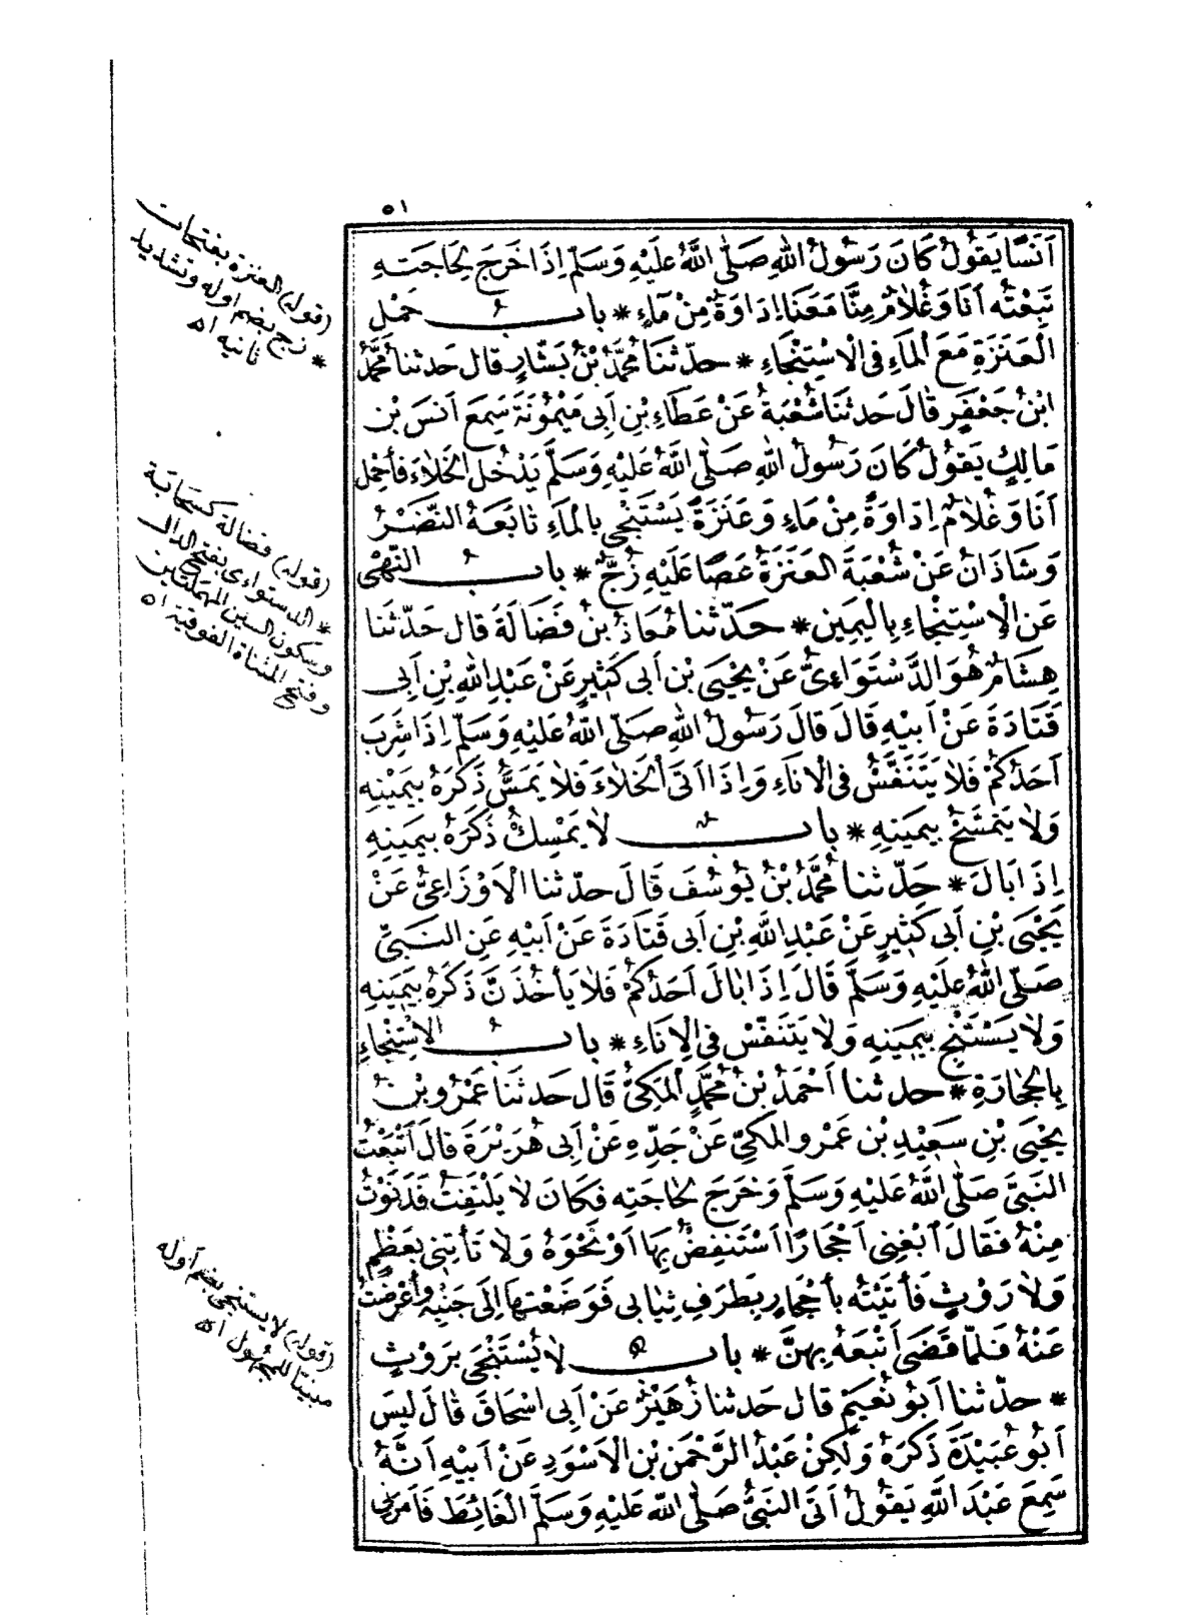 ٥١
اَنَسًا يَقُولُ كَانَ رَسُولُ اللهِ صَلَّى اللَّهُ عَلَيْهِ وَسَلَّمَ اِذَا خَرَجَ لِحَاجَتِهِ
تَبِعْتُهُ اَنَا وَغُلَامٌ مِنَّا مَعَنَا اِدَاوَةٌ مِنْ مَاءٍ * بابُ حَمْلِ
الْعَنَزَةِ مَعَ الْمَاءِ فِى الْاِسْتِنْجَاءِ * حدّثنا مُحَمَّدُ بْنُ بَشَّارٍ قال حَدثنا مُحَمَّدُ
ابْنُ جَعْفَرٍ قَالَ حَدثنَا شُعْبَةُ عَنْ عَطَاءِ بْنِ اَبِى مَيْمُونَةَ سَمِعَ اَنَسَ بْنَ
مَالِكٍ يَقُولُ كَانَ رَسُولُ اللهِ صَلَّى اللَّهُ عَلَيْهِ وَسَلَّمَ يَدْخُلُ الْخَلَاءَ فَاَحْمِلُ
اَنَا وَغُلَامٌ اِدَاوَةً مِنْ مَاءٍ وَعَنَزَةً يَسْتَنْجِى بِالْمَاءِ تَابَعَهُ النَّضْرُ
وَشَاذَانُ عَنْ شُعْبَةَ العَنَزَةُ عَصًا عَلَيْهِ زُجٌّ * بابُ النَّهْىِ
عَنِ الْاِسْتِنْجَاءِ بِالْيَمِينِ * حَدّثنا مُعَاذُ بْنُ فَضَالَةَ قال حَدّثَنا
هِشَامٌ هُوَ الدَّسْتَوَاءِىُّ عَنْ يَحْيَى بْنِ اَبى كَثِيرٍ عَنْ عَبْدِ اللهِ بْنِ اَبِى
قَتَادَةَ عَنْ اَبِيْهِ قَالَ قَالَ رَسُولُ اللهِ صَلَّى اللَّهُ عَلَيْهِ وَسَلَّمَ اِذَا شَرِبَ
اَحَدُكُمْ فَلَا يَتَنَفَّسْ فِى الْاِنَاءِ وَاِذَا اَتَى الْخَلَاءَ فَلَا يَمَسَّ ذَكَرَهُ بِيَمِيْنِهِ
وَلَا يَتَمَسَّحْ بِيَمِينِهِ * بابٌ لَا يُمْسِكُ ذَكَرَهُ بِيَمِينِهِ
اِذَا بَالَ * حَدّثنا مُحَمَّدُ بْنُ يُوسُفَ قَالَ حدّثنا الْاَوْزَاعِىُّ عَنْ
يَحْيَى بْنِ اَبى كَثِيرٍ عَنْ عَبْدِ اللَّهِ بْنِ اَبى قَتَادَةَ عَنْ اَبِيْهِ عَنِ النَّبِىِّ
صَلَّى اللهُ عَلَيْهِ وَسَلَّمَ قَالَ اِذَا بَالَ اَحَدُكُمْ فَلَا يَأْخُذَنَّ ذَكَرَهُ بِيَمِينِهِ
وَلَا يَسْتَنْجِ بِيَمِينِهِ وَلَا يَتَنَفَّسْ فِى الْاِنَاءِ * بابُ الاِسْتِنْجَاءِ
بِالْحِجَارَةِ * حدثنا اَحْمَدُ بْنُ مُحَمَّدٍ الْمَكِىُّ قَال حَدثنَا عَمْرُو بْنُ
يَحْيَى بْنِ سَعِيْدِ بْنِ عَمْرٍو المَكىُّ عَنْ جَدِّهِ عَنْ اَبِى هُرَيْرَةَ قالَ اَتْبَعْتُ
النَبِىَّ صَلَّى اللَّهُ عَلَيْهِ وَسَلَّمَ وَخَرَجَ لِحَاجَتِهِ فَكَانَ لَا يَلْتَفِتُ فَدَنَوْتُ
مِنْهُ فَقَالَ اَبْغِنِى اَحْجَارًا اَسْتَنْفِضْ بِهَا اَوْ نَحْوَهُ وَلَا تَأْتِنِى بِعَظْمٍ
وَلَا رَوْثٍ فَأَتَيْتُهُ بِأَحْجَارٍ بِطَرَفِ ثِيَابى فَوَضَعْتُهَا اِلَى جَنْبِهِ وَأَعْرَضْتُ
عَنْهُ فَلَمَّا قَضَى اَتْبَعَهُ بِهِنَّ * بابٌ لَا يُسْتَنْجَى بِرَوْثٍ
* حدّثنا اَبُو نُعَيْمٍ قال حَدثنا زُهَيْرٌ عَنْ اَبِى اِسْحَاقَ قَالَ لَيسَ
اَبُو عُبَيْدَةَ ذَكَرَهُ وَلَكِنْ عَبْدُ الرَّحْمَنِ بْنُ الْاَسْوَدِ عَنْ اَبِيْهِ اَنَّهُ
سَمِعَ عَبْدَ اللَّهِ يَقُولُ اَتَى النَبِىُّ صَلَّى اللَّه عَلَيْهِ وَسَلَّمَ الْغَائِطَ فَاَمَرَنِى
(قوله) العنزة بفتحات
* زج بضم اوله وتشديد
ثانيه اه
(قوله) فضالة كسحابة
* الدستواءى بفتح الدال
وسكون السين المهملتين
وفتح المثناة الفوقية اه
(قوله) لا يستنجى بضم أوله
مبنيا للمجهول اه